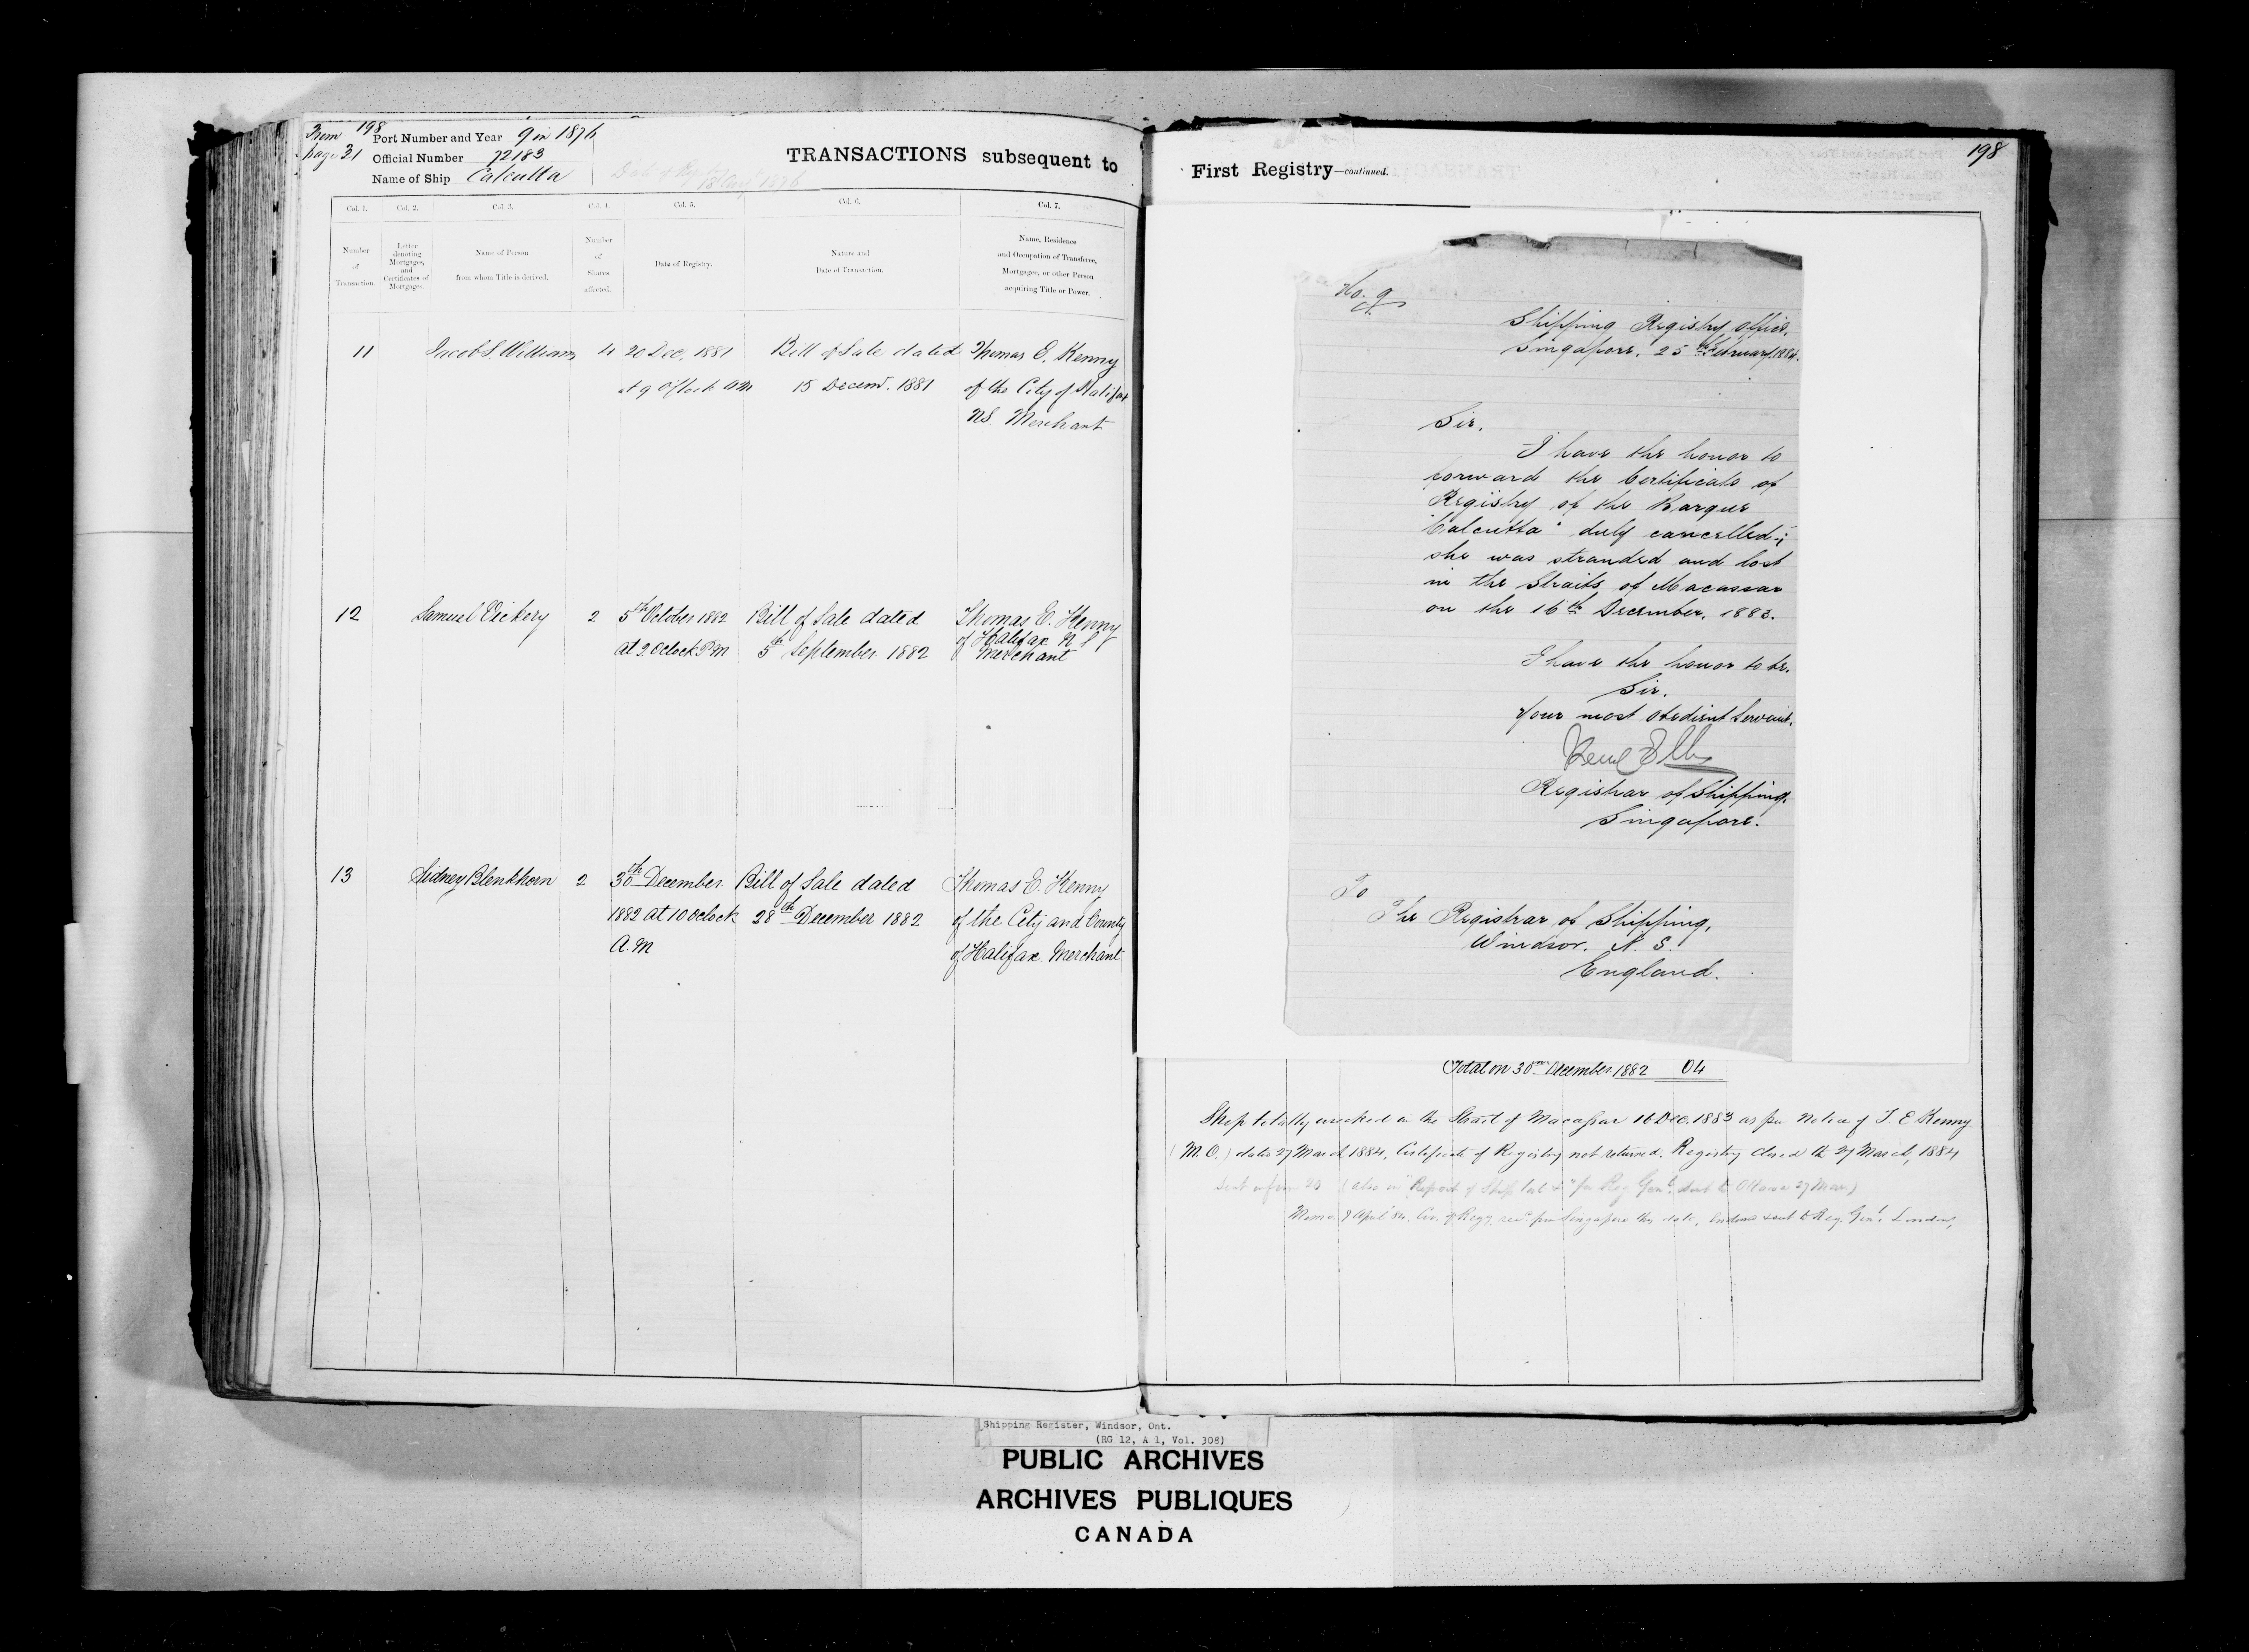 From 198
page 21
Port Number and Year 9 in 1876
Official Number 72183
Name of Ship Calcutta
TRANSACTIONS subsequent to
Col. 1. Col. 2. Col. 3. Col. 4. Col. 5. Col. 6. Col. 7.
Number of Transaction.
Letter denoting Mortgages, and Certificates of Mortgages.
Name of Person from whom Title is derived.
Number of Shares affected.
Date of Registry.
Nature and Date of Transaction.
Name, Residence and Occupation of Transferee, Mortgagee, or other Person acquiring Title or Power.
11 Jacob S. Williams 4 20 Dec. 1881 Bill of Sale dated Thomas E. Kenny
at 9 O'Clock AM 15 Decemr. 1881 of the City of Halifax
NS Merchant
12 Samuel Vickery 2 5th October 1882 Bill of Sale dated Thomas E. Kenny
at 2 Oclock P.M 5th September 1882 of Halifax N S
Merchant
13 Sidney Blenkhorn 2 30th December Bill of Sale dated Thomas E. Kenny
1882 at 10 oclock 28th December 1882 of the City and County
A.M of Halifax. Merchant
First Registry—continued.
198
No. 9
Shipping Registry Office,
Singapore. 25th February, 1884.
Sir,
I have the honor to
forward the Certificate of
Registry of the Barque
"Calcutta" duly cancelled;
she was stranded and lost
in the Straits of Macassar
on the 16th December, 1883.
I have the honor to be,
Sir,
Your most obedient Servant,
Registrar of Shipping,
Singapore.
To
The Registrar of Shipping,
Windsor. N. S.
England.
Total on 30th December 1882 64
Ship totally wrecked in the Strait of Macassar 16 Dec. 1883 as per notice of T. E Kenny
(M.O.) dated 27 March 1884, Certificate of Registry not returned. Registry closed the 27 March, 1884
(also in "Report of Ship lost &" for Reg Genl. sent to Ottawa 27 Mar)
Memo 9 April 84. Cer. of Regy. recd. from Singapore this date. sent to Reg. Genl. London,
Shipping Register, Windsor, Ont.
(RG 12, A 1, Vol. 308)
PUBLIC ARCHIVES
ARCHIVES PUBLIQUES
CANADA